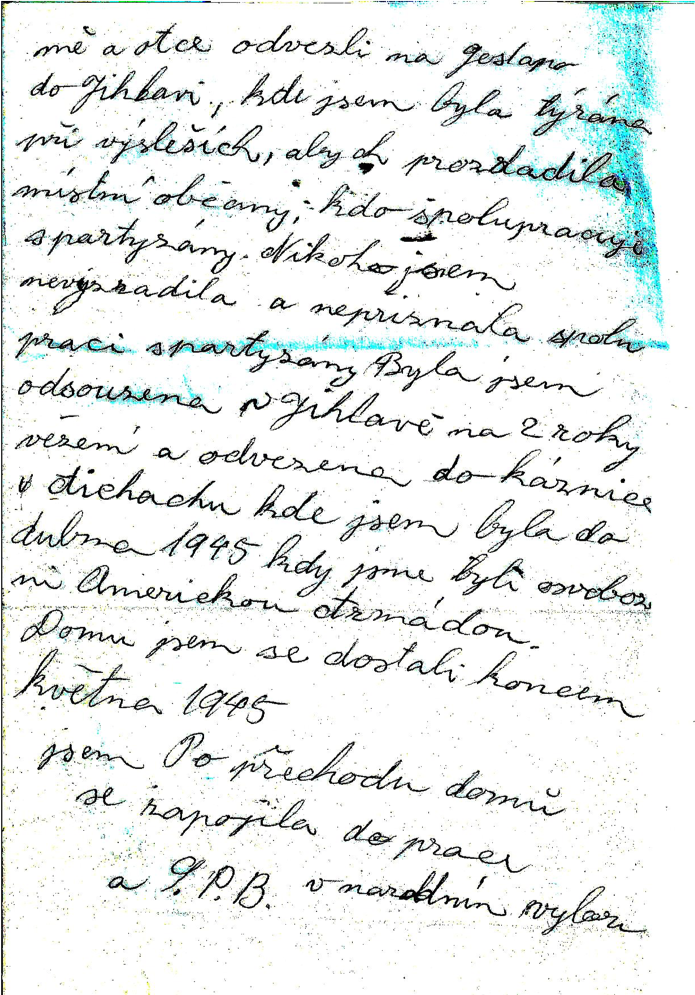 mě a otce odvezli na gestapo
do Jihlavi, kde jsem byla týrána
při výsleších, abych prozdadila
místní občany, kdo spolupracuje
s partyzány. Nikoho jsem
nevyzradila a nepřiznala spolu
praci s partyzány Byla jsem
odsouzena v Jihlavě na 2 roky
vězení a odvezena do káznice
v kde jsem byla do
dubna 1945 kdy jsme byli osvoboz
ni Americkou armádou.
Domu jsem se dostali koncem
května 1945
jsem Po přechodu domů
se zapojila do praci
a S.P.B. v narodnín vyboru